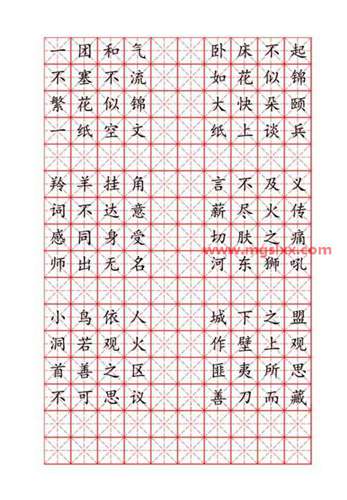 一团和气 卧床不起
不塞不流 如花似锦
繁花似锦 大快朵颐
一纸空文 纸上谈兵
羚羊挂角 言不及义
词不达意 薪尽火传
感同身受 切肤之痛
www.mgslxx.com
师出无名 河东狮吼
小鸟依人 城下之盟
洞若观火 作壁上观
首善之区 匪夷所思
不可思议 善刀而藏